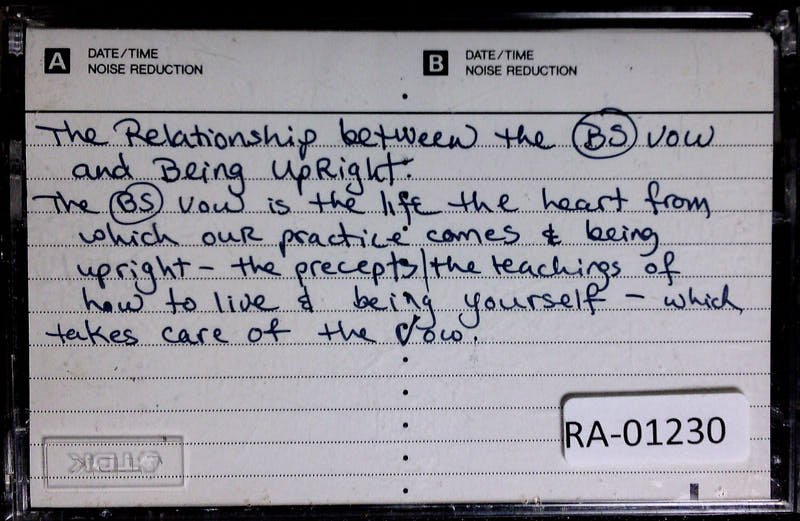 A DATE/TIME
NOISE REDUCTION
B DATE/TIME
NOISE REDUCTION
The Relationship between the BS vow
and Being UpRight.
The BS vow is the life the heart from
which our practice comes & being
upright – the precepts/the teachings of
how to live & being yourself – which
takes care of the Vow.
RA-01230
TDK